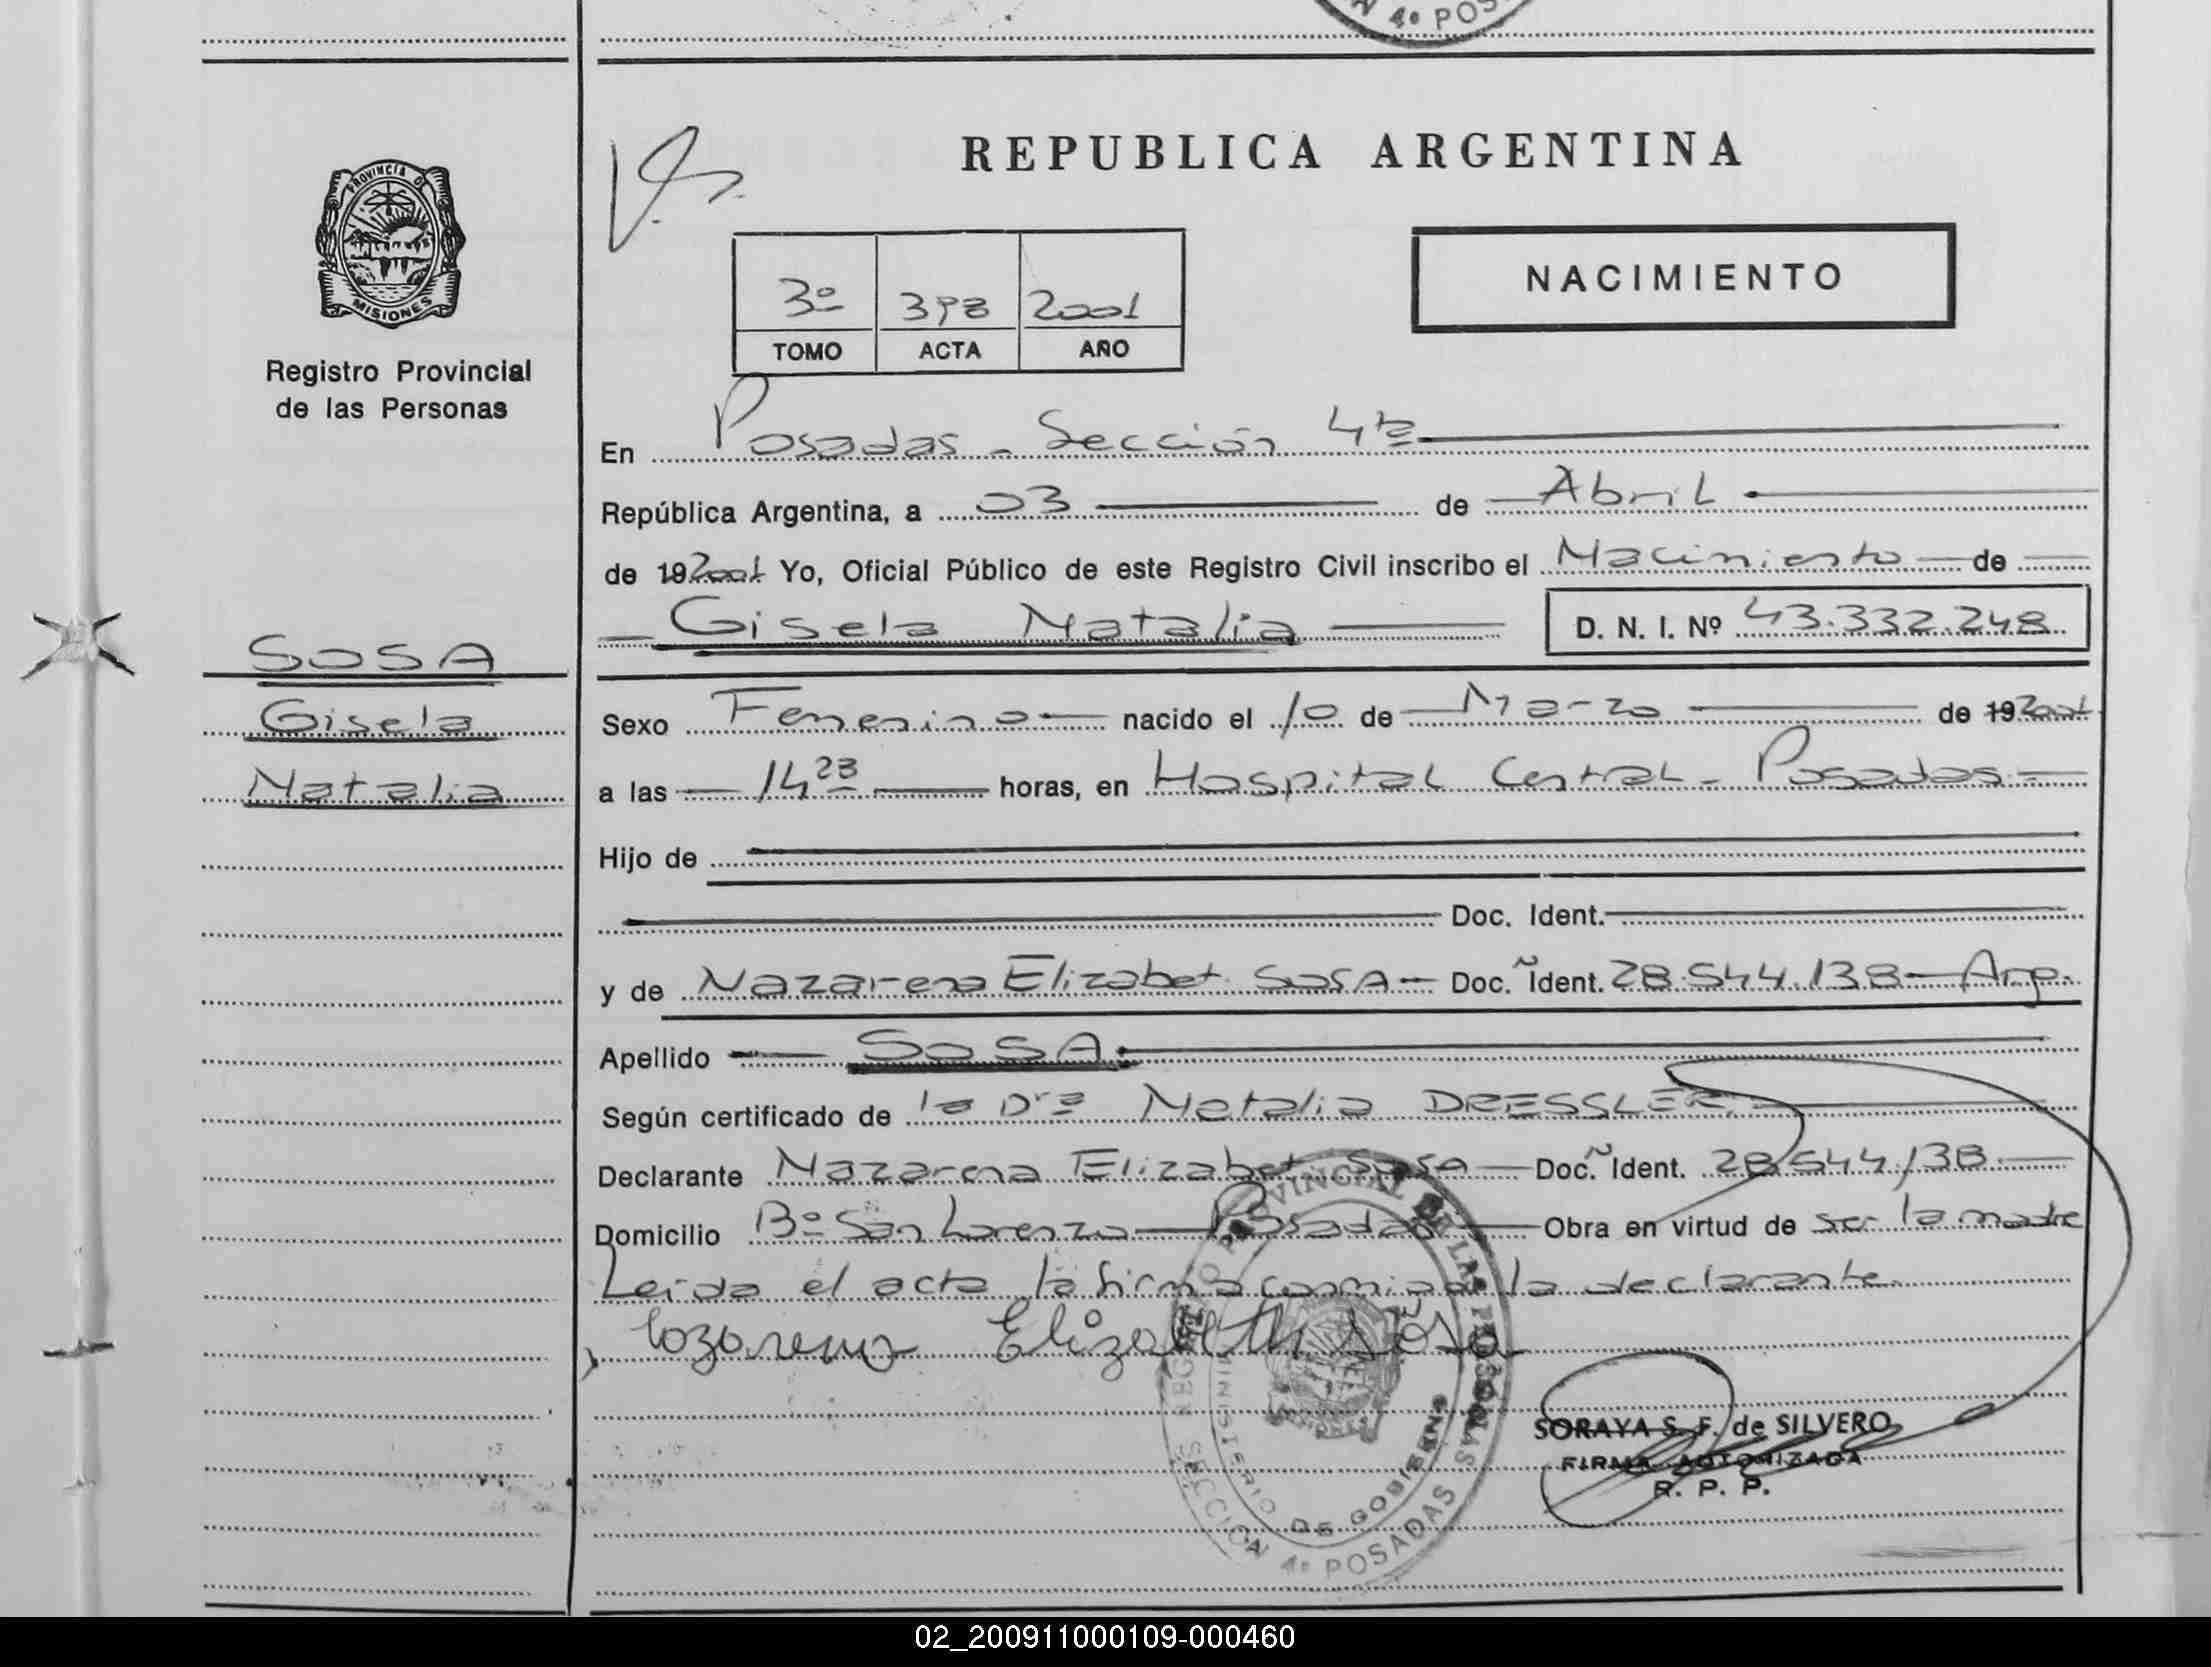 N 4º POS
REPUBLICA ARGENTINA
PROVINCIA D
MISIONES
Registro Provincial
de las Personas
NACIMIENTO
3º 398 2001
TOMO ACTA AÑO
En Posadas - Sección 4ta
República Argentina, a 03 de Abril
de 19 2001 Yo, Oficial Público de este Registro Civil inscribo el Nacimiento de
Gisela Natalia D. N. I. Nº 43.332.248
SOSA
Gisela
Natalia
Sexo Femenino nacido el 10 de Marzo de 19 2001
a las 14 23 horas, en Hospital Central - Posadas
Hijo de
Doc. Ident.
y de Nazarena Elizabet SOSA Doc. Ident. 28.544.138 - Arg.
Apellido SOSA
Según certificado de la Dra Natalia DRESSLER
Declarante Nazarena Elizabet Sosa Doc. Ident. 28.544.138
Domicilio Bº San Lorenzo - Posadas Obra en virtud de ser la madre
Leida el acta la firma conmigo la declarante
Elizabeth Sosa
REGISTRO PROVINCIAL DE LAS PERSONAS
MINISTERIO DE GOBIERNO
SECCION 4º POSADAS
SORAYA S. F. de SILVERO
FIRMA AUTORIZADA
R. P. P.
02_200911000109-000460